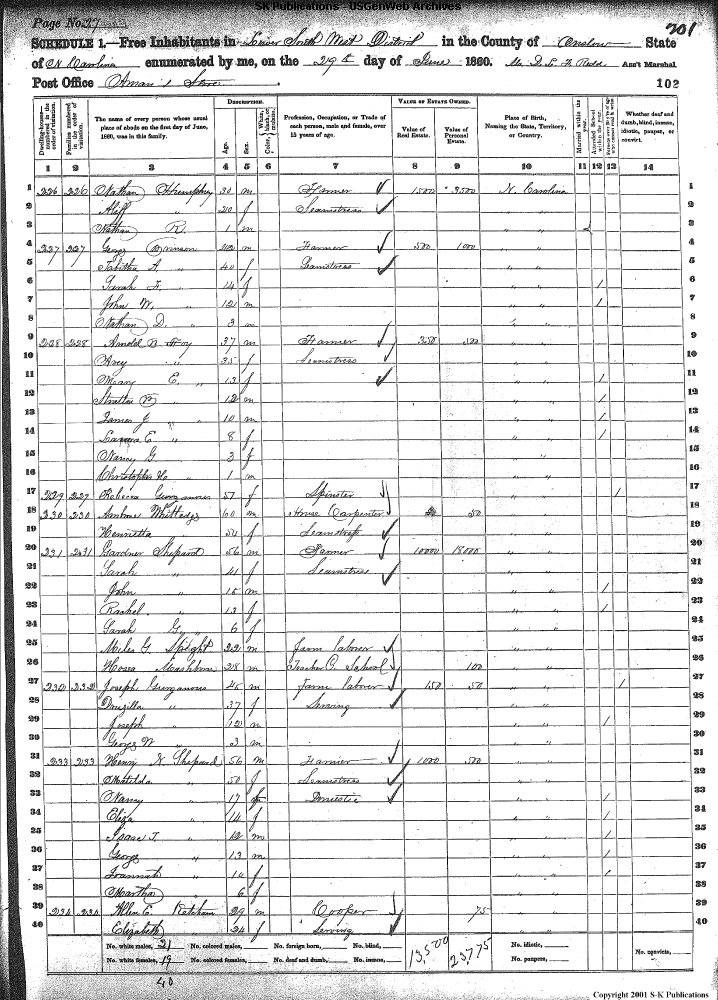 SK Publications - USGenWeb Archives
Page No. 27
201
SCHEDULE 1.—Free Inhabitants in Lower South West District in the County of Onslow State
of N Carolina enumerated by me, on the 29th day of June 1860. Ass't Marshal
Post Office
102
Dwelling-houses numbered in the order of visitation.
Families numbered in the order of visitation.
The name of every person whose usual place of abode on the first day of June, 1860, was in this family.
DESCRIPTION.
Age.
Sex.
Color, White, black, or mulatto.
Profession, Occupation, or Trade of each person, male and female, over 15 years of age.
VALUE OF ESTATE OWNED.
Value of Real Estate.
Value of Personal Estate.
Place of Birth, Naming the State, Territory, or Country.
Married within the year.
Attended School within the year.
Whether deaf and dumb, blind, insane, idiotic, pauper, or convict.
1 2 3 4 5 6 7 8 9 10 11 12 13 14
1 226 226 Nathan Humphrey 30 m Farmer 1500 3500 N. Carolina 1
2 20 f Seamstress 2
3 Nathan R. 1 m 3
4 227 227 42 m Farmer 500 1000 4
5 Tabitha A. " 40 f Seamstress 5
6 Sarah F. " 14 f / 6
7 John W. " 12 m / 7
8 Nathan D. " 3 m 8
9 228 228 Arnold B. 37 m Farmer 350 500 9
10 35 f Seamstress 10
11 Mary E. " 13 f / 11
12 B " 12 m / 12
13 James J " 10 m / 13
14 Laura E " 8 f / 14
15 Nancy G 3 f 15
16 Christopher " 1 m 16
17 229 Rebecca Gurganous 57 f Spinster / 17
18 230 230 Ambrose 60 m House Carpenter 50 18
19 Henrietta f Seamstress 19
20 231 231 Gardner Shepard 56 m Farmer 10000 18000 20
21 Sarah " 41 f Seamstress 21
22 John " 15 m / 22
23 Rachel " 13 f / 23
24 Sarah G " 6 f 24
25 Miles G. Speight 22 m Farm laborer 25
26 Hosea Mashburn 28 m Teacher C. School 100 26
27 232 232 Joseph Gurganous 45 m Farm laborer 150 50 / 27
28 " 37 f Serving 28
29 Joseph " 12 m / 29
30 George W " 3 m 30
31 233 233 Henry N. Shepard 56 m Farmer 1000 500 31
32 Matilda " 50 f Seamstress 32
33 Nancy " 17 f Domestic / 33
34 Eliza " 14 f / 34
35 Isaac T. " 12 m / 35
36 George " 13 m / 36
37 " 10 f / 37
38 Martha " 6 f 38
39 234 234 Allen E. Ketchum 29 m Cooper 75 39
40 Elizabeth " 24 f Serving 40
No. white males, 21 No. colored males, No. foreign born, No. blind, 13,500 23,775 No. idiotic,
No. white females, 19 No. colored females, No. deaf and dumb, No. insane, No. paupers, No. convicts,
40
Copyright 2001 S-K Publications